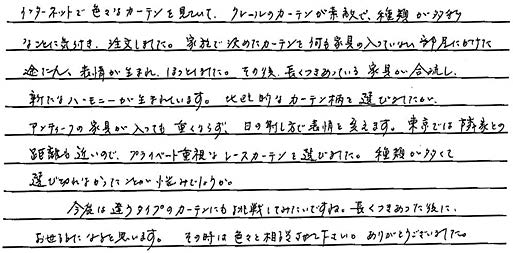 インターネットで色々なカーテンを見ていて、クレールのカーテンが素敵で、種類が多彩
なことに気付き、注文しました。家族で決めたカーテンを何も家具の入っていない部屋にかけた
途端、表情が生まれ、ほっとしました。その後、長くつきあっている家具が合流し、
新たなハーモニーが生まれています。比較的なカーテン柄を選びましたが、
アンティークの家具が入っても重くならず、日の射し方で表情を変えます。東京では隣家との
距離も近いので、プライベート重視なレースカーテンを選びました。種類が多くて
選び切れなかったことが悩みでしょうか。
今度は違うタイプのカーテンにも挑戦してみたいですね。長くつきあった後に、
お世話になると思います。その時は色々と相談させて下さい。ありがとうございました。